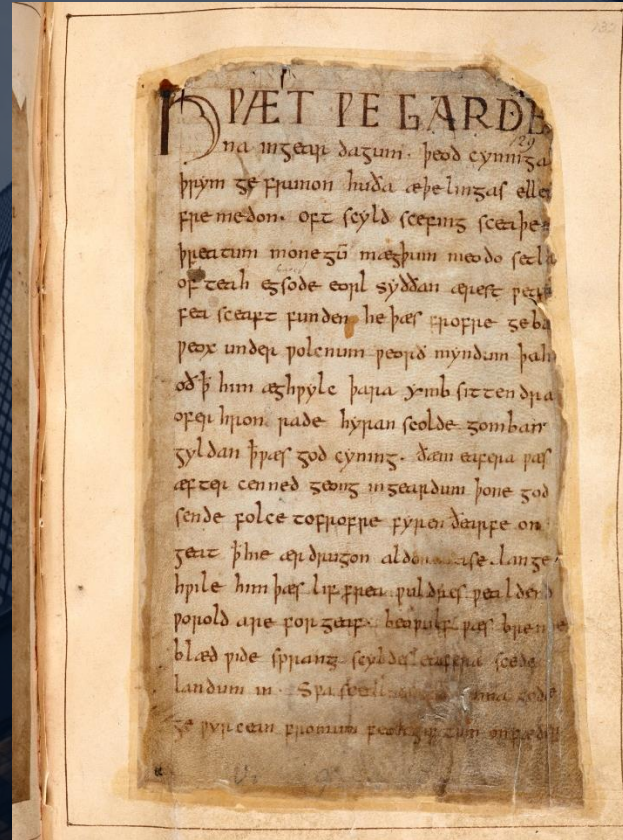 HǷÆT ǷE GARDE
na ingear dagum. þeod cyninga
þrym ge frunon huða æþelingas ellen
fremedon. oft scyld scefing sceaþe
þreatum monegū mægþum meodo setla
of teah egsode eorl syððan ærest ƿear
fea sceaft funden he þæs frofre geba
ƿeox under ƿolcnum ƿeorð myndum þah
oð ꝥ him æghƿylc þara ymb sittendra
ofer hron rade hyran scolde gomban
gyldan ꝥ ƿæs god cyning. ðæm eafera ƿæs
æfter cenned geong ingeardum þone god
sende folce tofrofre fyren ðearfe on
geat ꝥ hie ær drugon aldor ase. lange
hƿile him þæs lif frea ƿuldres ƿealdend
ƿorold are forgeaf. beoƿulf ƿæs breme
blæd ƿide sprang scyldes eafera scede
landum in. Sƿa gode
ge ƿyrcean fromum feoh giftum on fæder
132
129